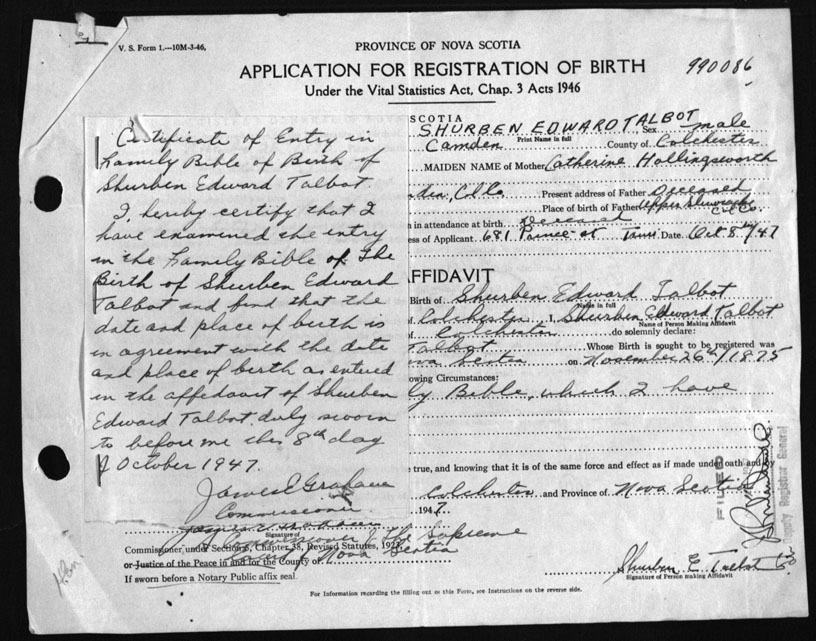 V. S. Form 1.—10M-3-46.
PROVINCE OF NOVA SCOTIA
APPLICATION FOR REGISTRATION OF BIRTH
990086
Under the Vital Statistics Act, Chap. 3 Acts 1946
Certificate of Entry in
Family Bible of Birth of
Shurben Edward Talbot.
I, hereby certify that I
have examined the entry
in the Family Bible of The
Birth of Shurben Edward
Talbot and find that the
date and place of birth is
in agreement with the date
and place of birth as entered
in the affidavit of Shurben
Edward Talbot, duly sworn
to before me this 8th day
of October 1947.
James E Graham
Commissioner
SCOTIA
SHURBEN EDWARD TALBOT Sex male
Print Name in full
Camden County of Colchester
MAIDEN NAME of Mother Catherine Hollingsworth
den, Col Co Present address of Father Deceased
Place of birth of Father Upper Stewiacke Col Co.
n in attendance at birth Deceased
ess of Applicant 681 Prince st Truro Date. Oct 8th/47
FFIDAVIT
Birth of Shurben Edward Talbot
Name in full
of Colchester I, Shurben Edward Talbot
Name of Person Making Affidavit
of Colchester do solemnly declare:
Talbot Whose Birth is sought to be registered was
ova Scotia on November 26th/1875
owing Circumstances:
ly Bible, which I have
e true, and knowing that it is of the same force and effect as if made under oath and by
Colchester and Province of Nova Scotia
1947.
Signature of
A Commissioner of the Supreme
Commissioner, under Section 6, Chapter 38, Revised Statutes, 1923,
Court of Nova Scotia
or Justice of the Peace in and for the County of
If sworn before a Notary Public affix seal.
Shurben E Talbot
Signature of Person making Affidavit
For Information regarding the filling out of this Form, see Instructions on the reverse side.
FILED
Deputy Registrar General